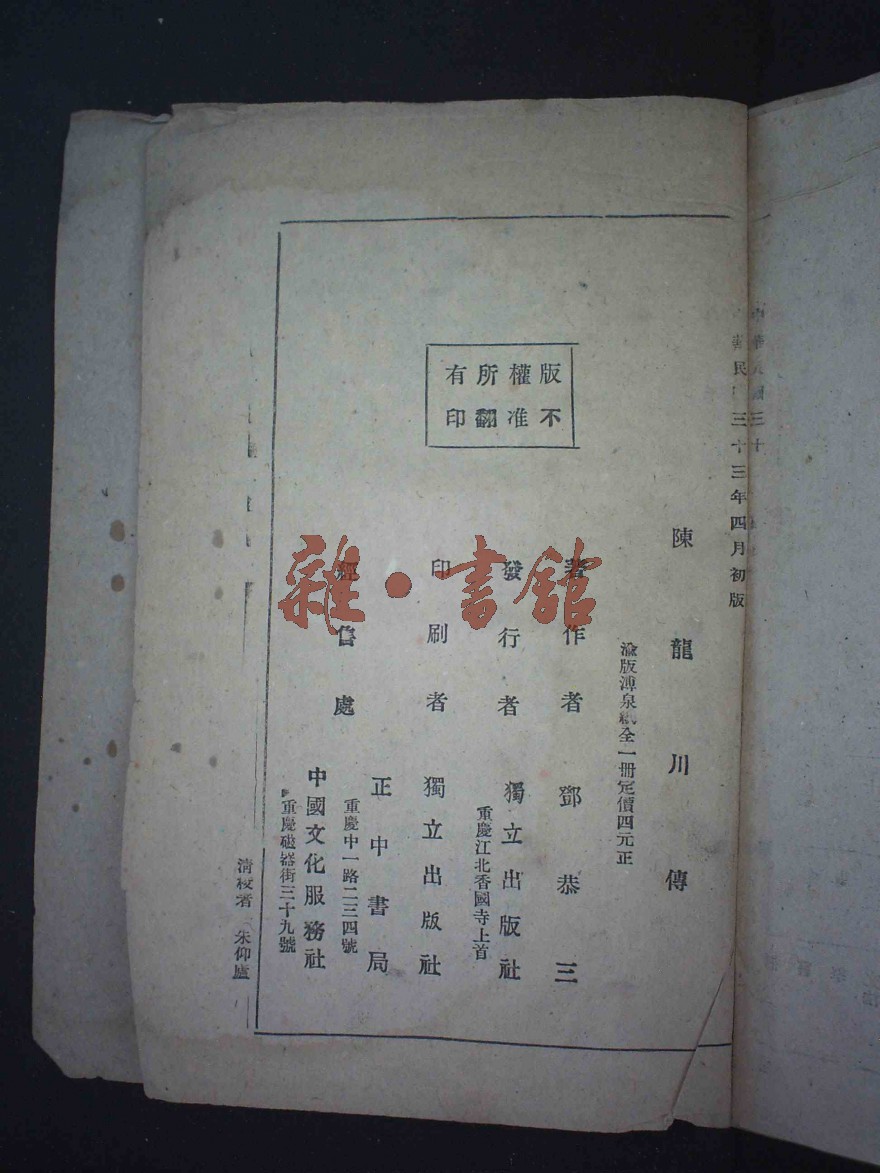 中華民國三十三年四月初版
陳龍川傳
渝版溥泉紙全一册定價四元正
版權所有
不准翻印
著作者 鄧恭三
發行者 獨立出版社
重慶江北香國寺上首
印刷者 獨立出版社
經售處
正中書局
重慶中一路二三四號
中國文化服務社
重慶磁器街三十九號
清校者 朱仰廬
雜·書館